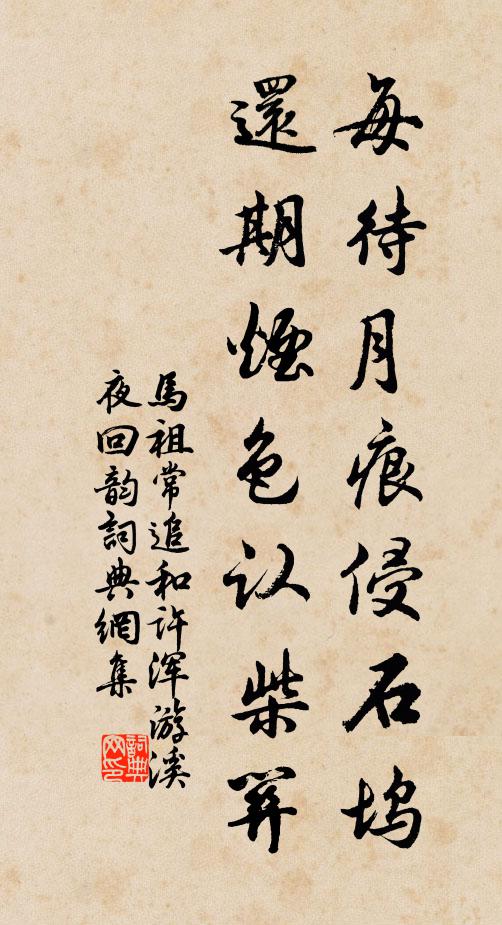 每待月痕侵石塢
還期煙色认柴關
馬祖常追和許渾游溪
夜回韵詞典網集
詞典网印